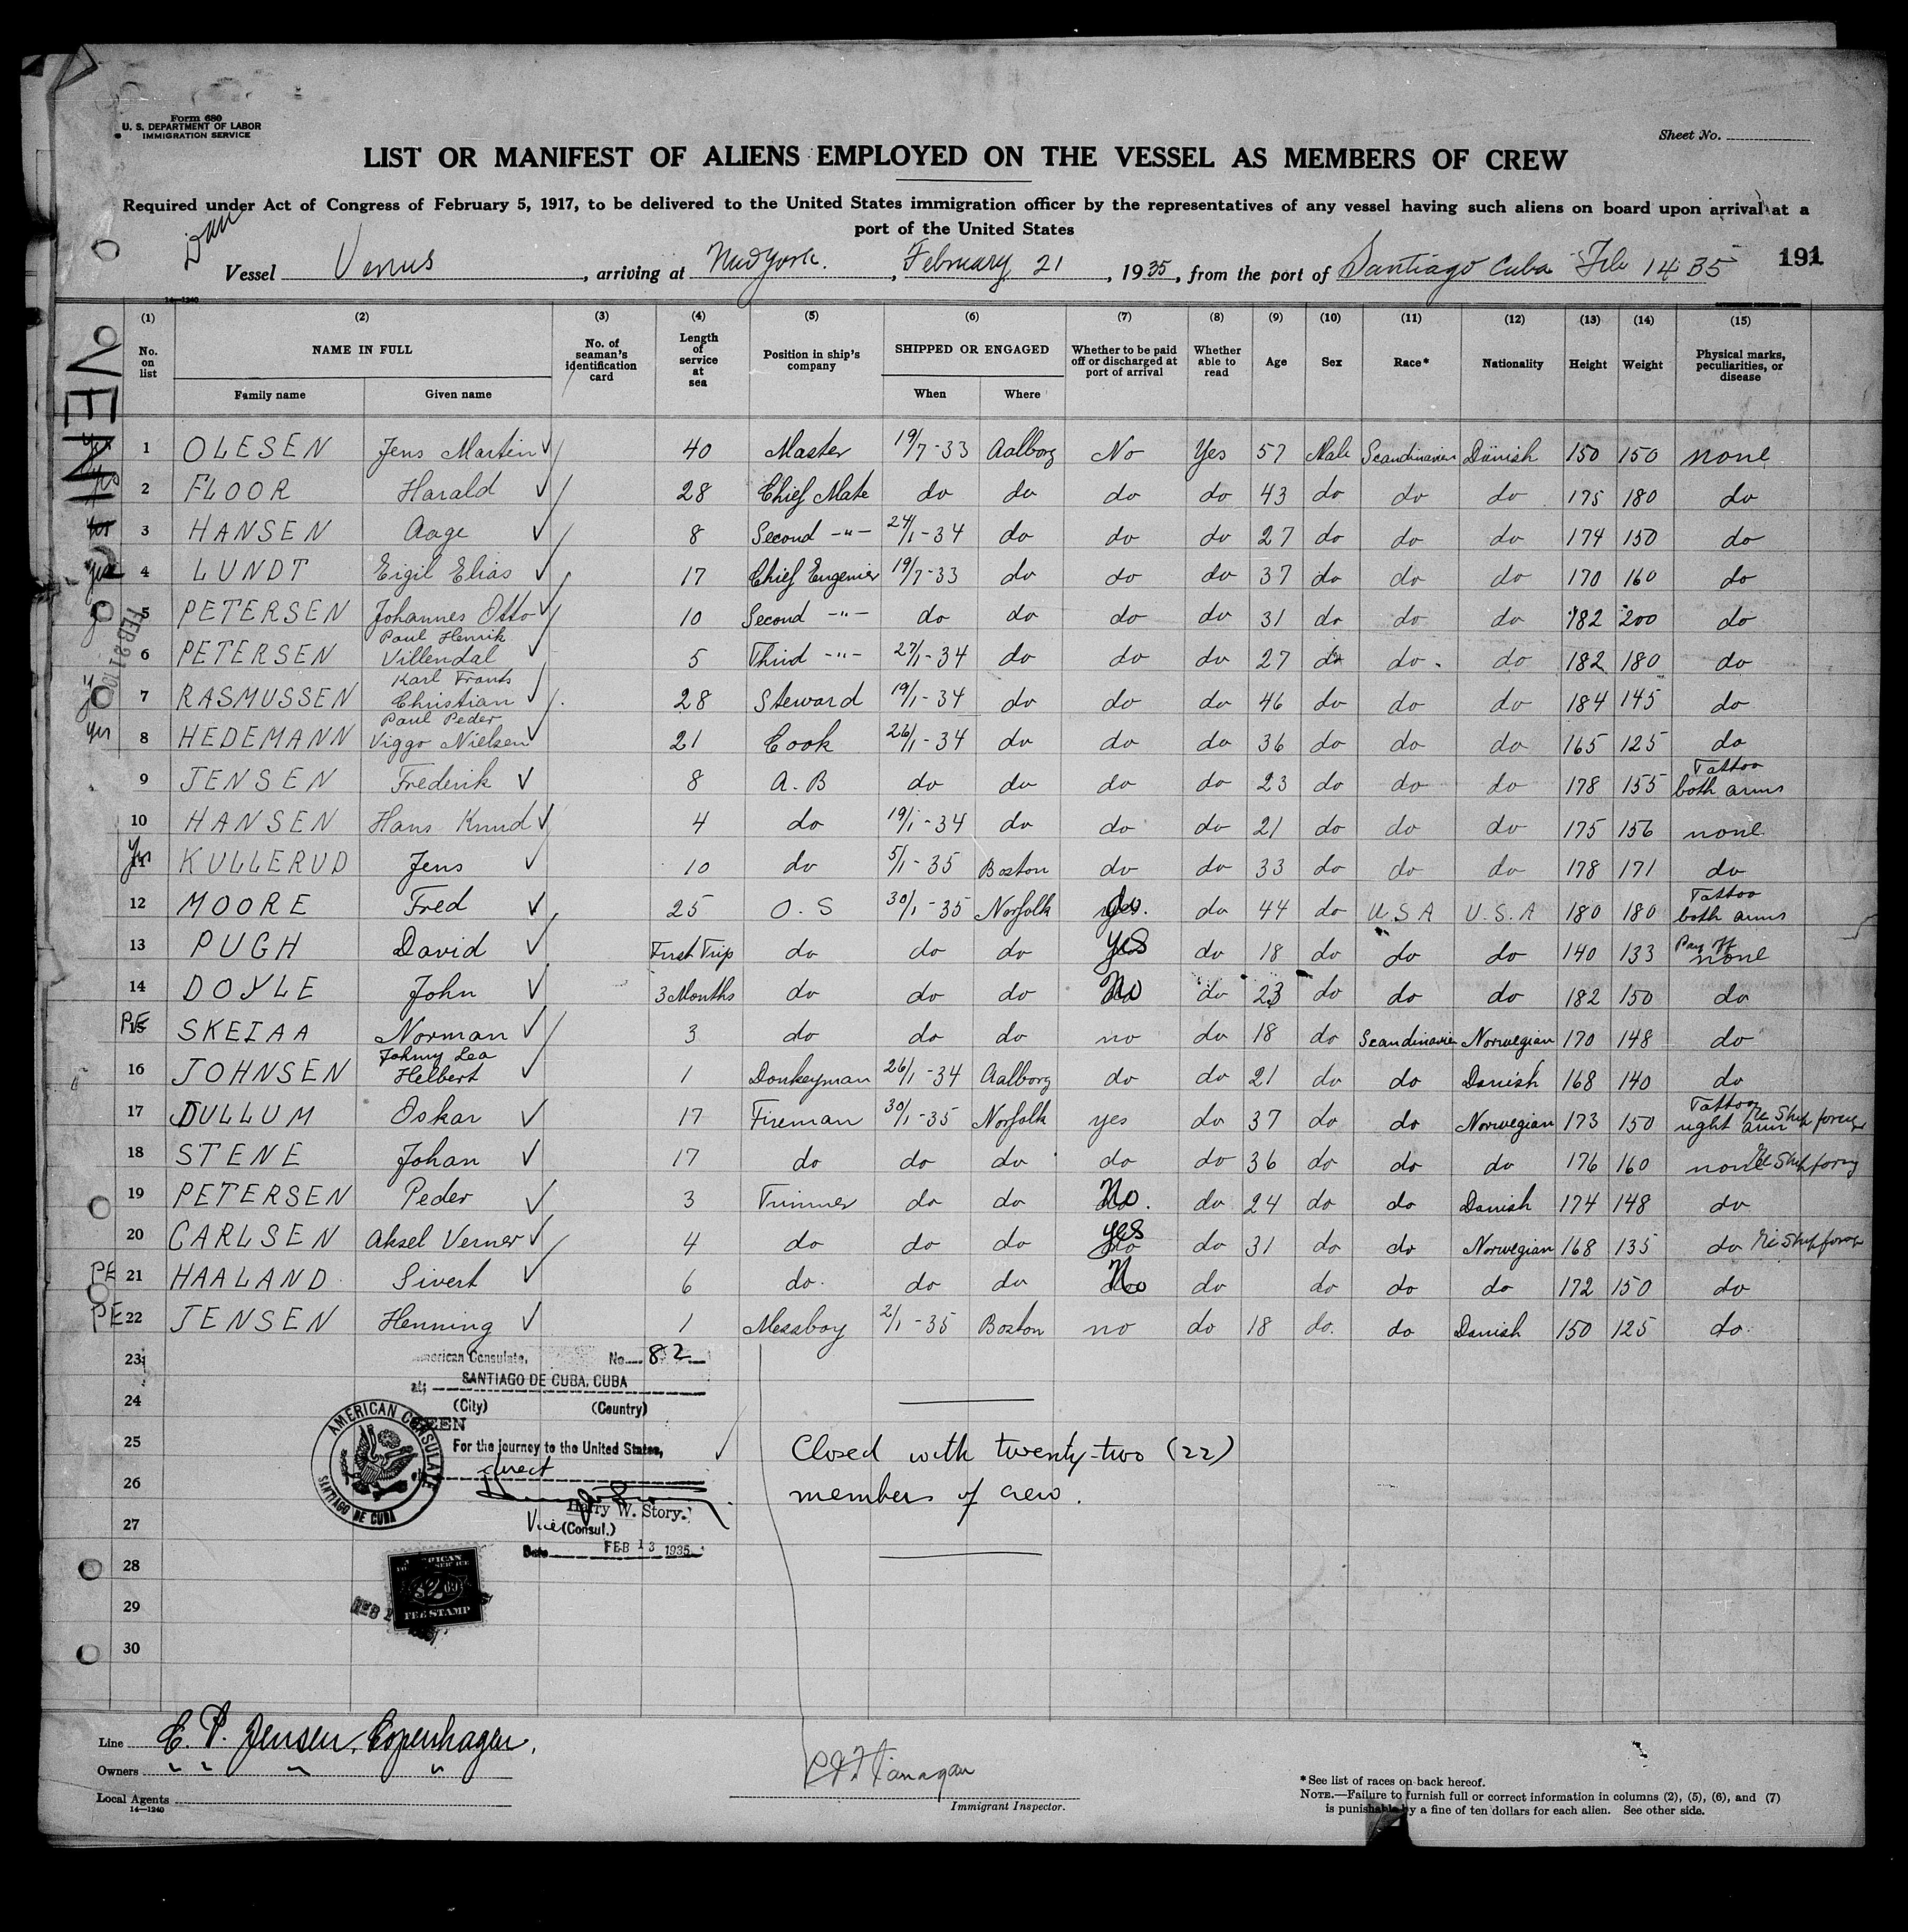 Form 680
U. S. DEPARTMENT OF LABOR
IMMIGRATION SERVICE
Sheet No.
LIST OR MANIFEST OF ALIENS EMPLOYED ON THE VESSEL AS MEMBERS OF CREW
Required under Act of Congress of February 5, 1917, to be delivered to the United States immigration officer by the representatives of any vessel having such aliens on board upon arrival at a
port of the United States
Dan
Vessel Venus, arriving at New York., February 21, 1935, from the port of Santiago Cuba Feb 14 35
191
14—1240
VENUS
(1) (2) (3) (4) (5) (6) (7) (8) (9) (10) (11) (12) (13) (14) (15)
No. on list NAME IN FULL No. of seaman's identification card Length of service at sea Position in ship's company SHIPPED OR ENGAGED Whether to be paid off or discharged at port of arrival Whether able to read Age Sex Race* Nationality Height Weight Physical marks, peculiarities, or disease
Family name Given name When Where
1 OLESEN Jens Martin 40 Master 19/7-33 Aalborg No Yes 57 Male Scandinavien Danish 150 150 none
2 FLOOR Harald 28 Chief Mate do do do do 43 do do do 175 180 do
3 HANSEN Aage 8 Second -"- 24/1-34 do do do 27 do do do 174 150 do
4 LUNDT Eigil Elias 17 Chief Engenier 19/7-33 do do do 37 do do do 170 160 do
5 PETERSEN Johannes Otto 10 Second -"- do do do do 31 do do do 182 200 do
6 PETERSEN Paul Henrik Villendal 5 Third -"- 27/1-34 do do do 27 do do. do 182 180 do
7 RASMUSSEN Karl Frants Christian 28 Steward 19/1-34 do do do 46 do do do 184 145 do
yes 8 HEDEMANN Paul Peder Viggo Nielsen 21 Cook 26/1-34 do do do 36 do do do 165 125 do
9 JENSEN Frederik 8 A.B do do do do 23 do do do 178 155 Tattoo both arms
10 HANSEN Hans Knud 4 do 19/1-34 do do do 21 do do do 175 156 none
yes 11 KULLERUD Jens 10 do 5/1-35 Boston do do 33 do do do 178 171 do
12 MOORE Fred 25 O.S 30/1-35 Norfolk do 44 do U.S.A U.S.A 180 180 Tattoo both arms
13 PUGH David First Trip do do do yes do 18 do do do 140 133 Pay off none
14 DOYLE John 3 Months do do do No do 23 do do do 182 150 do
PE 15 SKEIAA Norman 3 do do do no do 18 do Scandinavien Norwegian 170 148 do
16 JOHNSEN Johnny Lea Helbert 1 Donkeyman 26/1-34 Aalborg do do 21 do do Danish 168 140 do
17 DULLUM Oskar 17 Fireman 30/1-35 Norfolk yes do 37 do do Norwegian 173 150 Tattoo right arm Re Ship foreign
18 STENE Johan 17 do do do do do 36 do do do 176 160 none Re Ship foreign
19 PETERSEN Peder 3 Trimmer do do No do 24 do do Danish 174 148 do
20 CARLSEN Aksel Verner 4 do do do yes do 31 do do Norwegian 168 135 do Re Ship foreign
PE 21 HAALAND Sivert 6 do. do do No do do do do 172 150 do
PE 22 JENSEN Henning 1 Messboy 2/1-35 Boston no do 18 do. do Danish 150 125 do
23
24
25
26
27
28
29
30
American Consulate, No. 82
at; SANTIAGO DE CUBA, CUBA
(City) (Country)
SEEN
For the journey to the United States,
direct
Harry W. Story.
Vice (Consul.)
Date FEB 13 1935
AMERICAN CONSULATE
SANTIAGO DE CUBA
FEE STAMP
Closed with twenty-two (22)
members of crew.
Line E. P. Jensen, Copenhagen.
Owners " " " "
Local Agents
14—1240
Immigrant Inspector.
*See list of races on back hereof.
NOTE.—Failure to furnish full or correct information in columns (2), (5), (6), and (7)
is punishable by a fine of ten dollars for each alien. See other side.